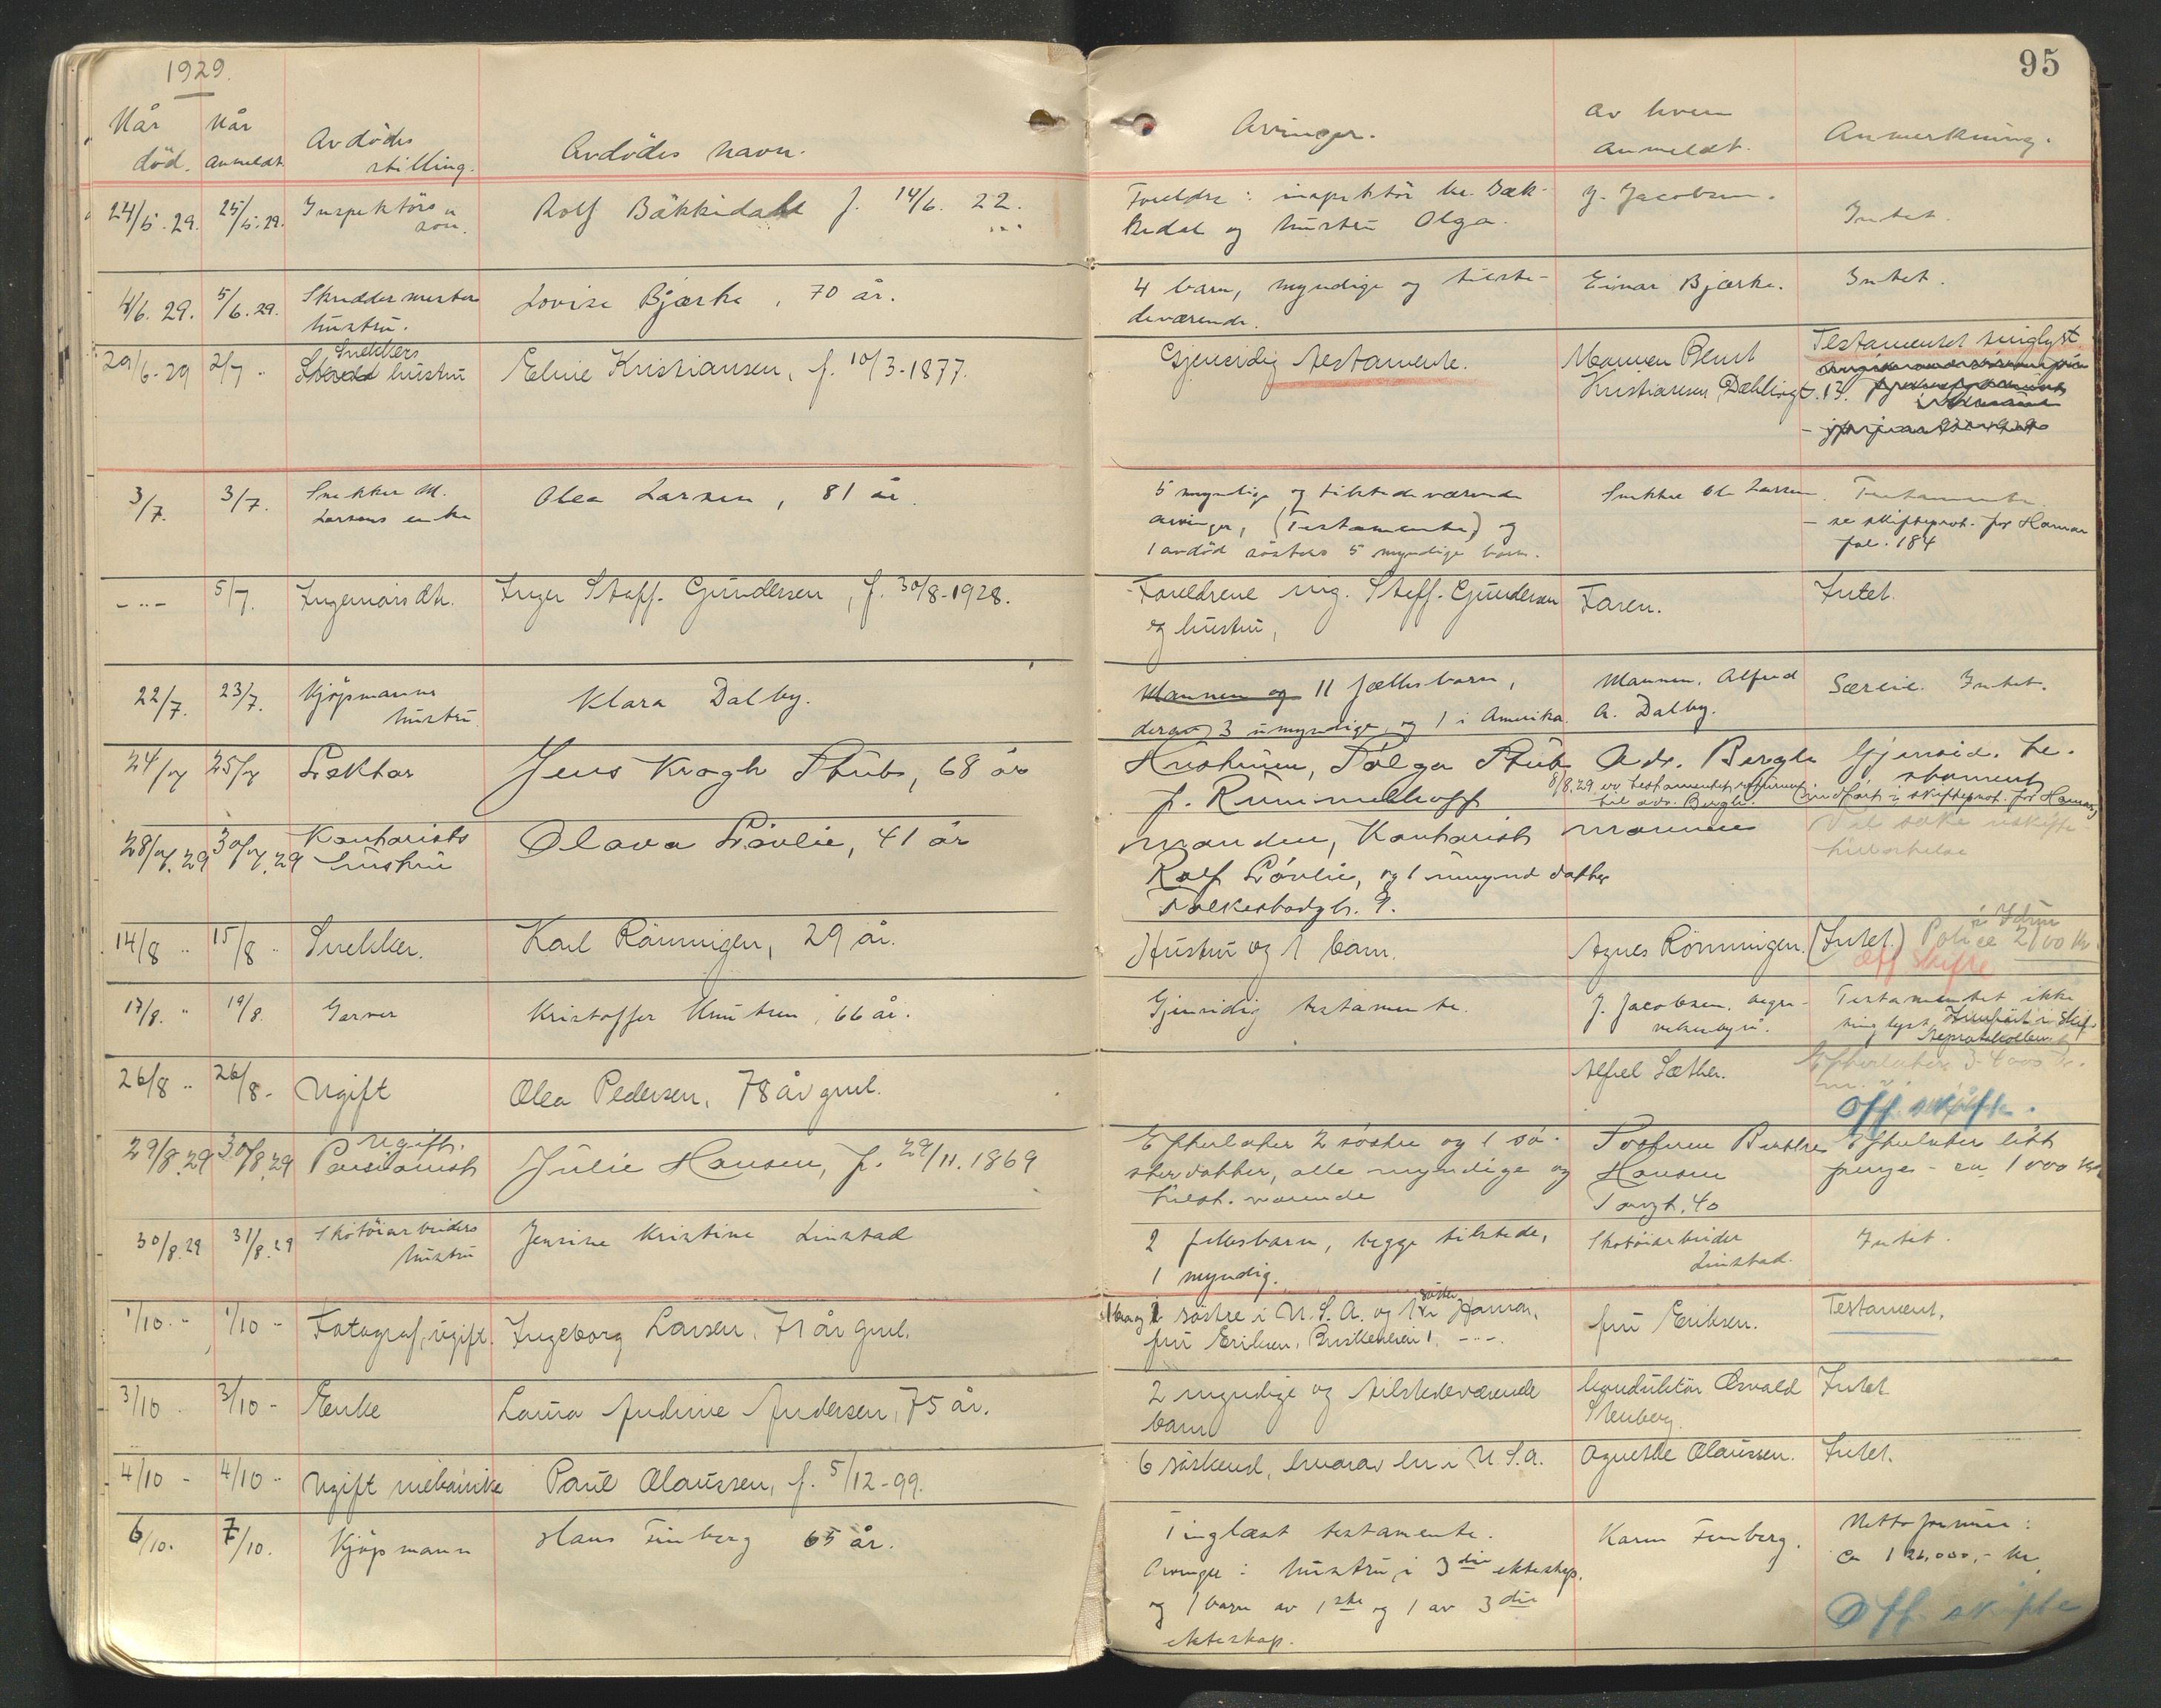 1929.
95
Når død.
Når anmeldt.
Avdødes stilling.
Avdødes navn.
Arvinger.
av hvem anmeldt.
Anmerkning.
24/5.29. 25/5.29. Inspektørs
Rolf Bäkkidahl f. 14/6. 22.
Foreldre: inspektör
og hustru Olga.
J. Jacobsen.
Intet.
4/6. 29. 5/6. 29. Skreddermesters
hustru.
Lovise Bjærke, 70 år.
4 barn, myndige og tilste-
deværende.
Einar Bjærke.
Intet.
29/6-29 2/7 - Snekkers
hustru
Eline Kristiansen, f. 10/3-1877.
Gjensidig testamente.
Mannen Bernt
Kristiansen,
Testamentet tinglyst
3/7. 3/7. Snekker M.
Larsens enke
Olea Larsen, 81 år.
5 myndige og tilstedeværende
arvinger, (Testamente) og
1 avdød søsters 5 myndige barn.
Snekker Ole Larsen.
Testamente
- se skifteprot. for Hamar
fol. 184
-"- 5/7. Ingeniørs dtr.
Inger Staff. Gundersen, f. 30/8-1928.
Foreldrene ing. Staff. Gundersen
og hustru,
Faren.
Intet.
22/7. 23/7. Kjøpmanns
hustru.
Klara Dalby.
Mannen og 11 fællesbarn,
derav 3 umyndige, og 1 i Amerika.
Mannen, Alfred
A. Dalby.
Særeie. Intet.
24/7 25/7 Lektor
Jens Kragh Stub, 68 år
Hustruen, Solga Stub
f. Rummelhoff
Adv. Bergh
8/8.29 er testamentet returnert
til adv. Bergh.
Gjensid. te-
stament
(indført i skifteprot. for Hamar)
28/7.29 30/7.29 Kontorists
hustru
Olava Løvlie, 41 år
Manden, Kontorist
Rolf Løvlie, og 1 umynd datter
Folkestadgt. 9.
Mannen
Vil søke uskifte
14/8 " 15/8 - Snekker.
Karl Rønningen, 29 år.
Hustru og 1 barn.
Agnes Rønningen.
(Intet.) Police 2100 kr.
i Idun
Off skifte
17/8. " 19/8. Garver
Kristoffer Knutsen, 66 år.
Gjensidig testamente.
J. Jacobsen, begra-
velsesbyrå.
Testamentet ikke
tinglyst. Innført i skif-
teprotokollen.
26/8 " 26/8 - Ugift
Olea Pedersen, 78 år gml.
Alfred Sæther.
Efterlater 3-4000 kr.
Off. skifte.
29/8.29 30/8.29 Ugift.
Pensionist
Julie Hansen, f. 29/11.1869
Efterlater 2 søstre og 1 sø-
sterdatter, alle myndige og
tilst. værende
Hansen
Torvgt. 40
Efterlater litt
penger - ca 1000 kr
30/8.29 31/8.29 Skotøiarbeiders
hustru
Jensine Kristine Linstad
2 fellesbarn, begge tilstede,
1 myndig.
Skotøiarbeider
Linstad.
Intet.
1/10. - 1/10 - Fotograf, ugift.
Ingeborg Larsen, 71 år gml.
søstre i U.S.A. og 1 søster i Hamar,
fru Eriksen, 1. -"-.
fru Eriksen.
Testament.
3/10 - 3/10 - Enke
Laura Andrine Andersen, 75 år.
2 myndige og tilstedeværende
barn
Konduktør Osvald
Stenberg.
Intet
4/10 - 4/10 - Ugift mekaniker
Paul Olaussen, f. 5/12-99.
6 søskend, hvorav en i U.S.A.
Agnethe Olaussen.
Intet.
6/10. 7/10. Kjøpmann
Hans Finberg 65 år.
Tinglæst testamente.
Arvinger: hustru i 3die ekteskap.
og 1 barn av 1ste og 1 av 3die
ekteskap.
Karen Finberg.
Nettoformue:
Ca 126,000,- kr.
Off. skifte